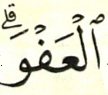 ٱلْعَفْوَۗ